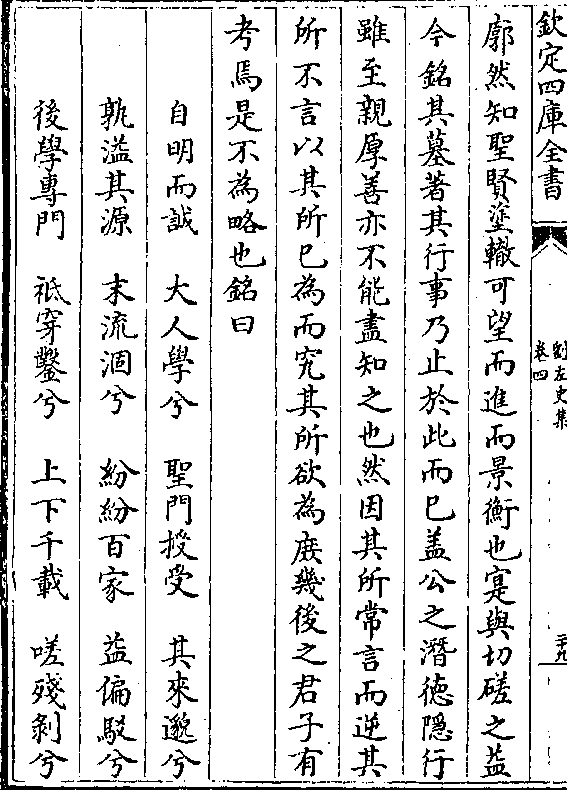 欽定四庫全書
劉左史集
卷四
二十九
廓然知聖賢塗轍可望而進而景衡也寔與切磋之益
今銘其墓著其行事乃止於此而已盖公之潛德隠行
雖至親厚善亦不能盡知之也然因其所常言而逆其
所不言以其所已為而究其所欲為庻幾後之君子有
考焉是不為略也銘曰
自明而誠　大人學兮　聖門授受　其來邈兮
孰溢其源　末流涸兮　紛紛百家　益偏駁兮
後學專門　祗穿鑿兮　上下千載　嗟殘剝兮